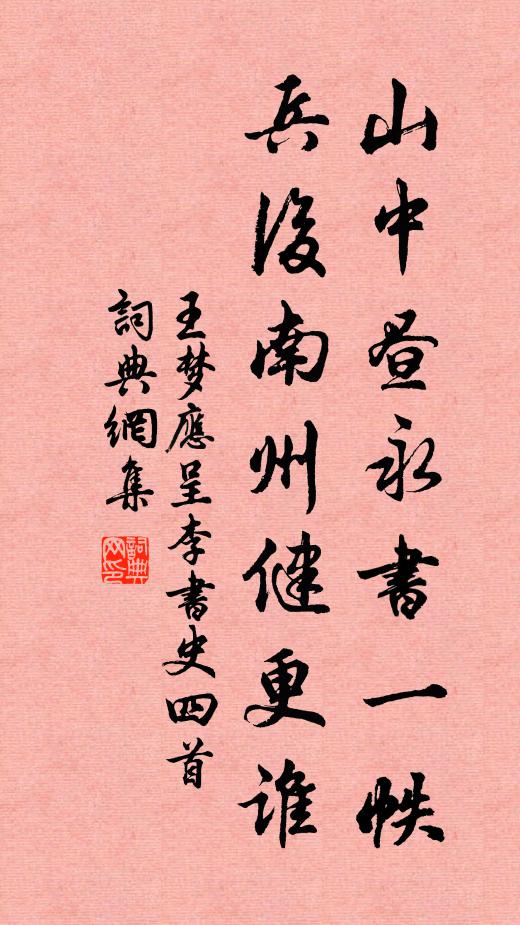 山中昼永書一帙
兵後南州健更誰
王梦應呈李書史四首
詞典網集
詞典网印